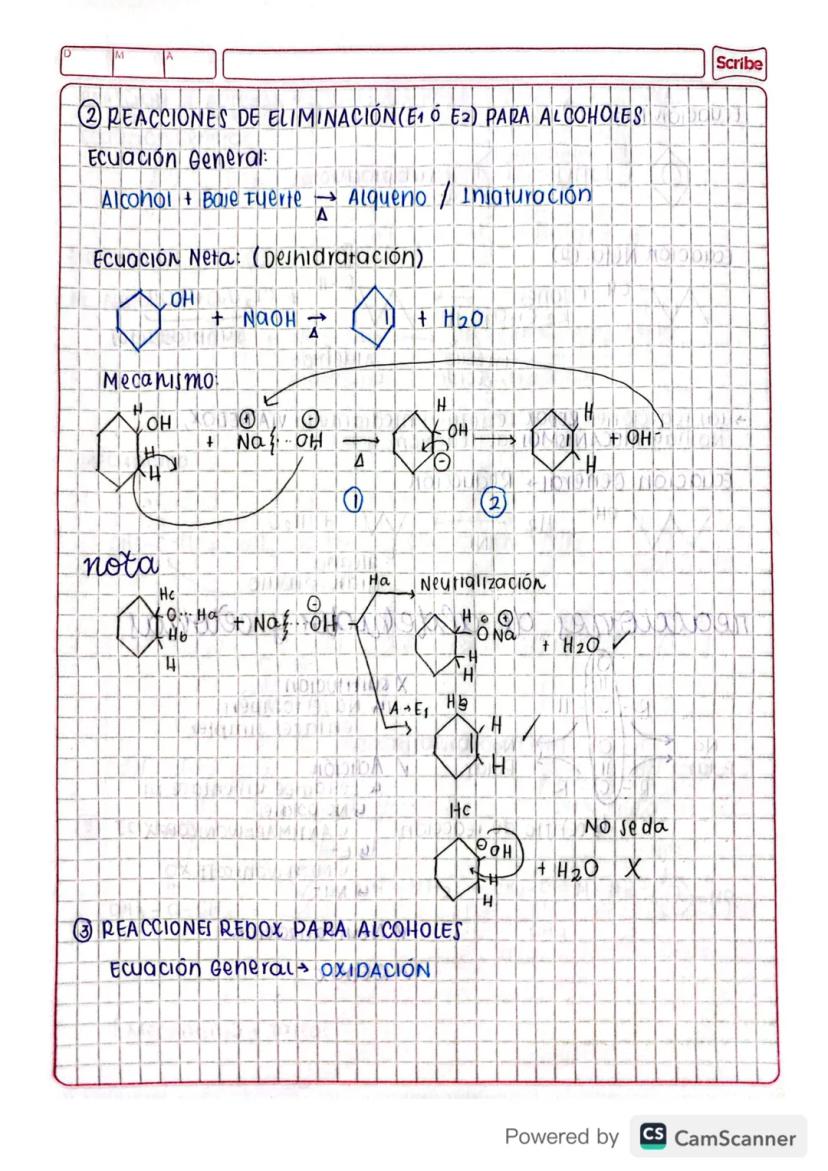 D M A
Scribe
② REACCIONES DE ELIMINACIÓN (E1 Ó E2) PARA ALCOHOLES
Ecuación General:
Alcohol + Base Fuerte →Δ Alqueno / Insaturación
Ecuación Neta: (Deshidratación)
OH + NaOH →Δ + H2O
Mecanismo:
H OH H H + Na⊕ ··· OH⊖ →Δ H OH ⊖ → H H + OH⁻
① ②
nota
Ha Neutralización
Hc O···Ha Hb H + Na ··· OH⊖
H O⊖ Na⊕ H H + H2O ✓
Δ→E1 Hb
H H
Hc
No se da
⊖ OH H H + H2O X
③ REACCIONES REDOX PARA ALCOHOLES
Ecuación General → OXIDACIÓN
Powered by CS CamScanner